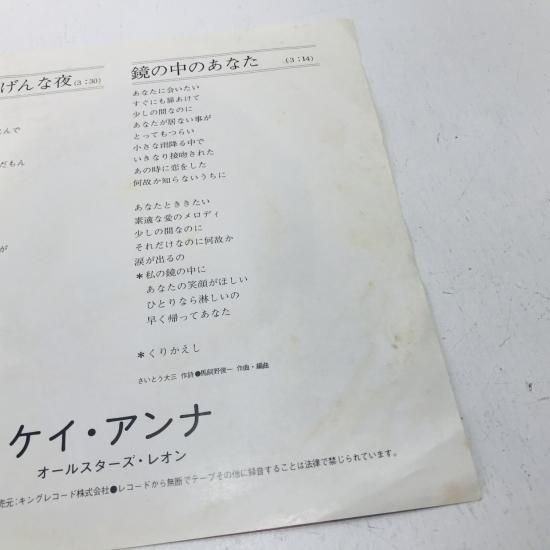 げんな夜(3:30)
んで
だもん
が
鏡の中のあなた (3:14)
あなたに会いたい
すぐにも扉あけて
少しの間なのに
あなたが居ない事が
とってもつらい
小さな雨降る中で
いきなり接吻された
あの時に恋をした
何故か知らないうちに
あなたとききたい
素適な愛のメロディ
少しの間なのに
それだけなのに何故か
涙が出るの
*私の鏡の中に
あなたの笑顔がほしい
ひとりなら淋しいの
早く帰ってあなた
*くりかえし
さいとう大三 作詩●馬飼野俊一 作曲・編曲
ケイ・アンナ
オールスターズ・レオン
売元:キングレコード株式会社●レコードから無断でテープその他に録音することは法律で禁じられています。